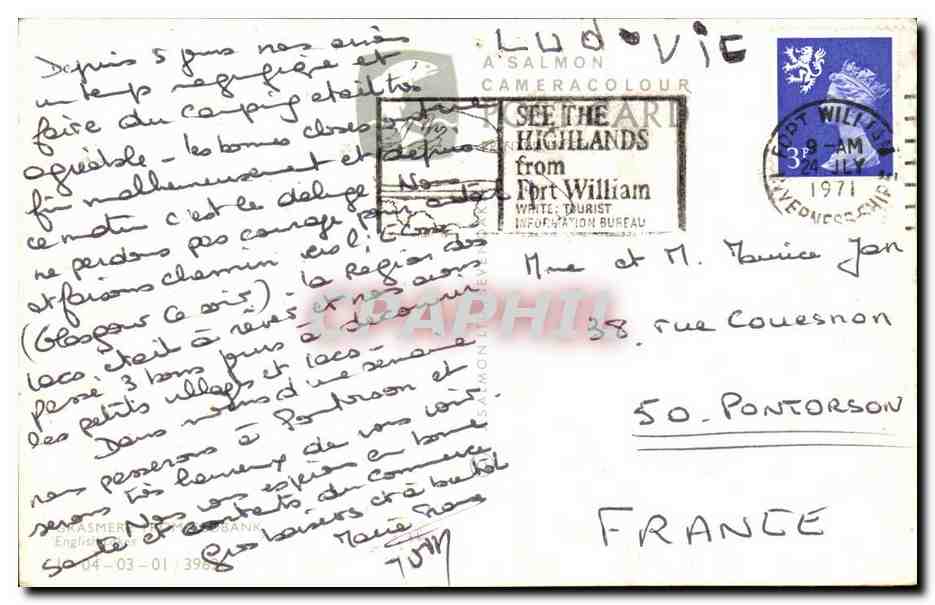 Depuis 5 jours nous avions
un temps magnifique et
faire du camping était très
agréable - les bonnes choses ont une
fin malheureusement et depuis
ce matin c'est le déluge. Nous
ne perdons pas courage pour autant
et faisons chemin vers l'Ecosse
(Glasgow ce soir). la Région des
lacs était à rêver et nous avons
passé 3 bons jours à découvrir
les petits villages et lacs -
Dans moins d'une semaine
nous passerons à Pontorson et
serons très heureux de vous voir.
Nous vous espérons en bonne
santé et contents du commerce
Gros baisers et à bientôt
Marie France
GRASMERE FROM BANK
English Lakes
04-03-01 / 398
LUDOVIC
A SALMON
CAMERACOLOUR
POST CARD
SEE THE
HIGHLANDS
from
Fort William
WRITE: TOURIST
INFORMATION BUREAU
3P
FORT WILLIAM
9-AM
24 JLY
1971
INVERNESS-SHIRE
J SALMON LTD SEVENOAKS
CPAPHIL
Mme et M. Maurice Jan
38, rue Couesnon
50. PONTORSON
FRANCE